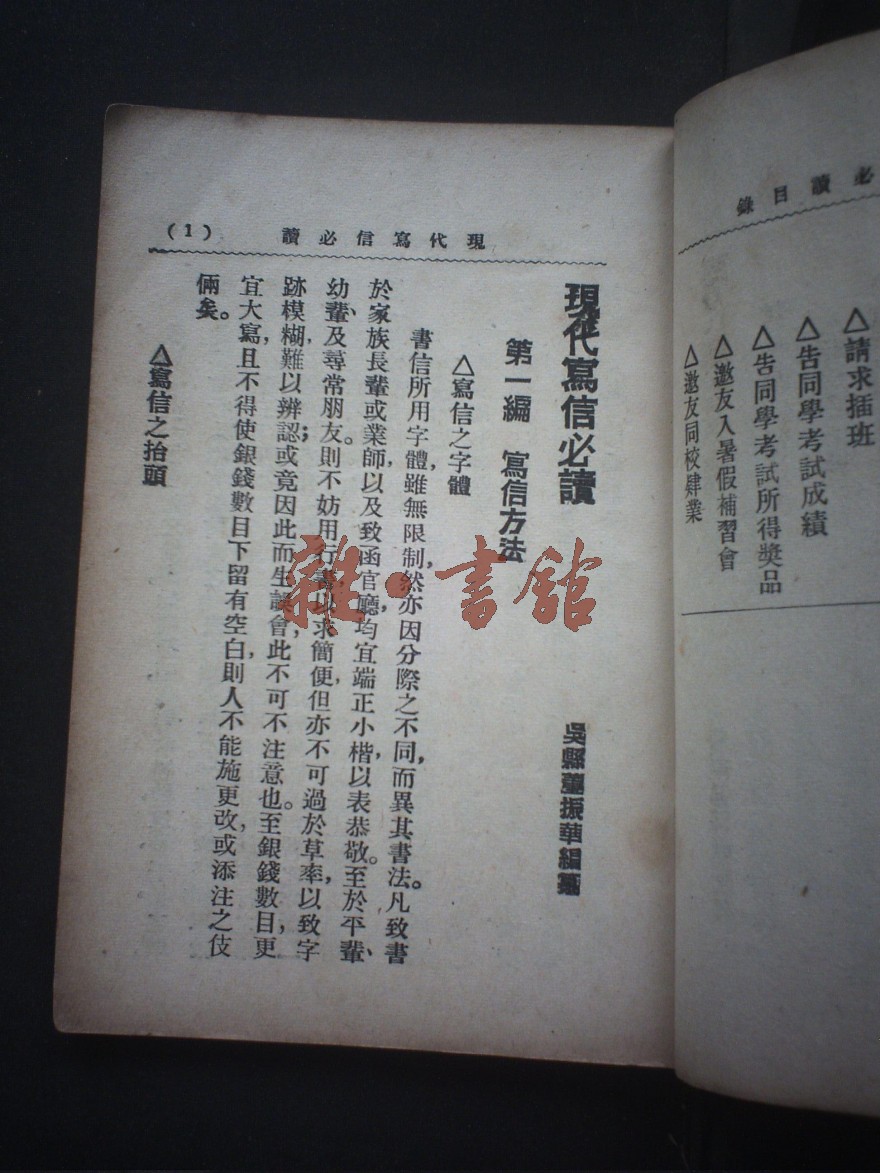 必讀目錄
△請求插班
△告同學考試成績
△告同學考試所得獎品
△邀友入暑假補習會
△邀友同校肄業
現代寫信必讀
(1)
現代寫信必讀
吳縣董振華編纂
第一編　寫信方法
△寫信之字體
書信所用字體，雖無限制，然亦因分際之不同，而異其書法。凡致書
於家族長輩或業師，以及致函官廳，均宜端正小楷，以表恭敬。至於平輩、
幼輩、及尋常朋友，則不妨用行書以求簡便，但亦不可過於草率，以致字
跡模糊，難以辨認；或竟因此而生誤會，此不可不注意也。至銀錢數目，更
宜大寫，且不得使銀錢數目下留有空白，則人不能施更改或添注之伎
倆矣。
△寫信之抬頭
雜·書館